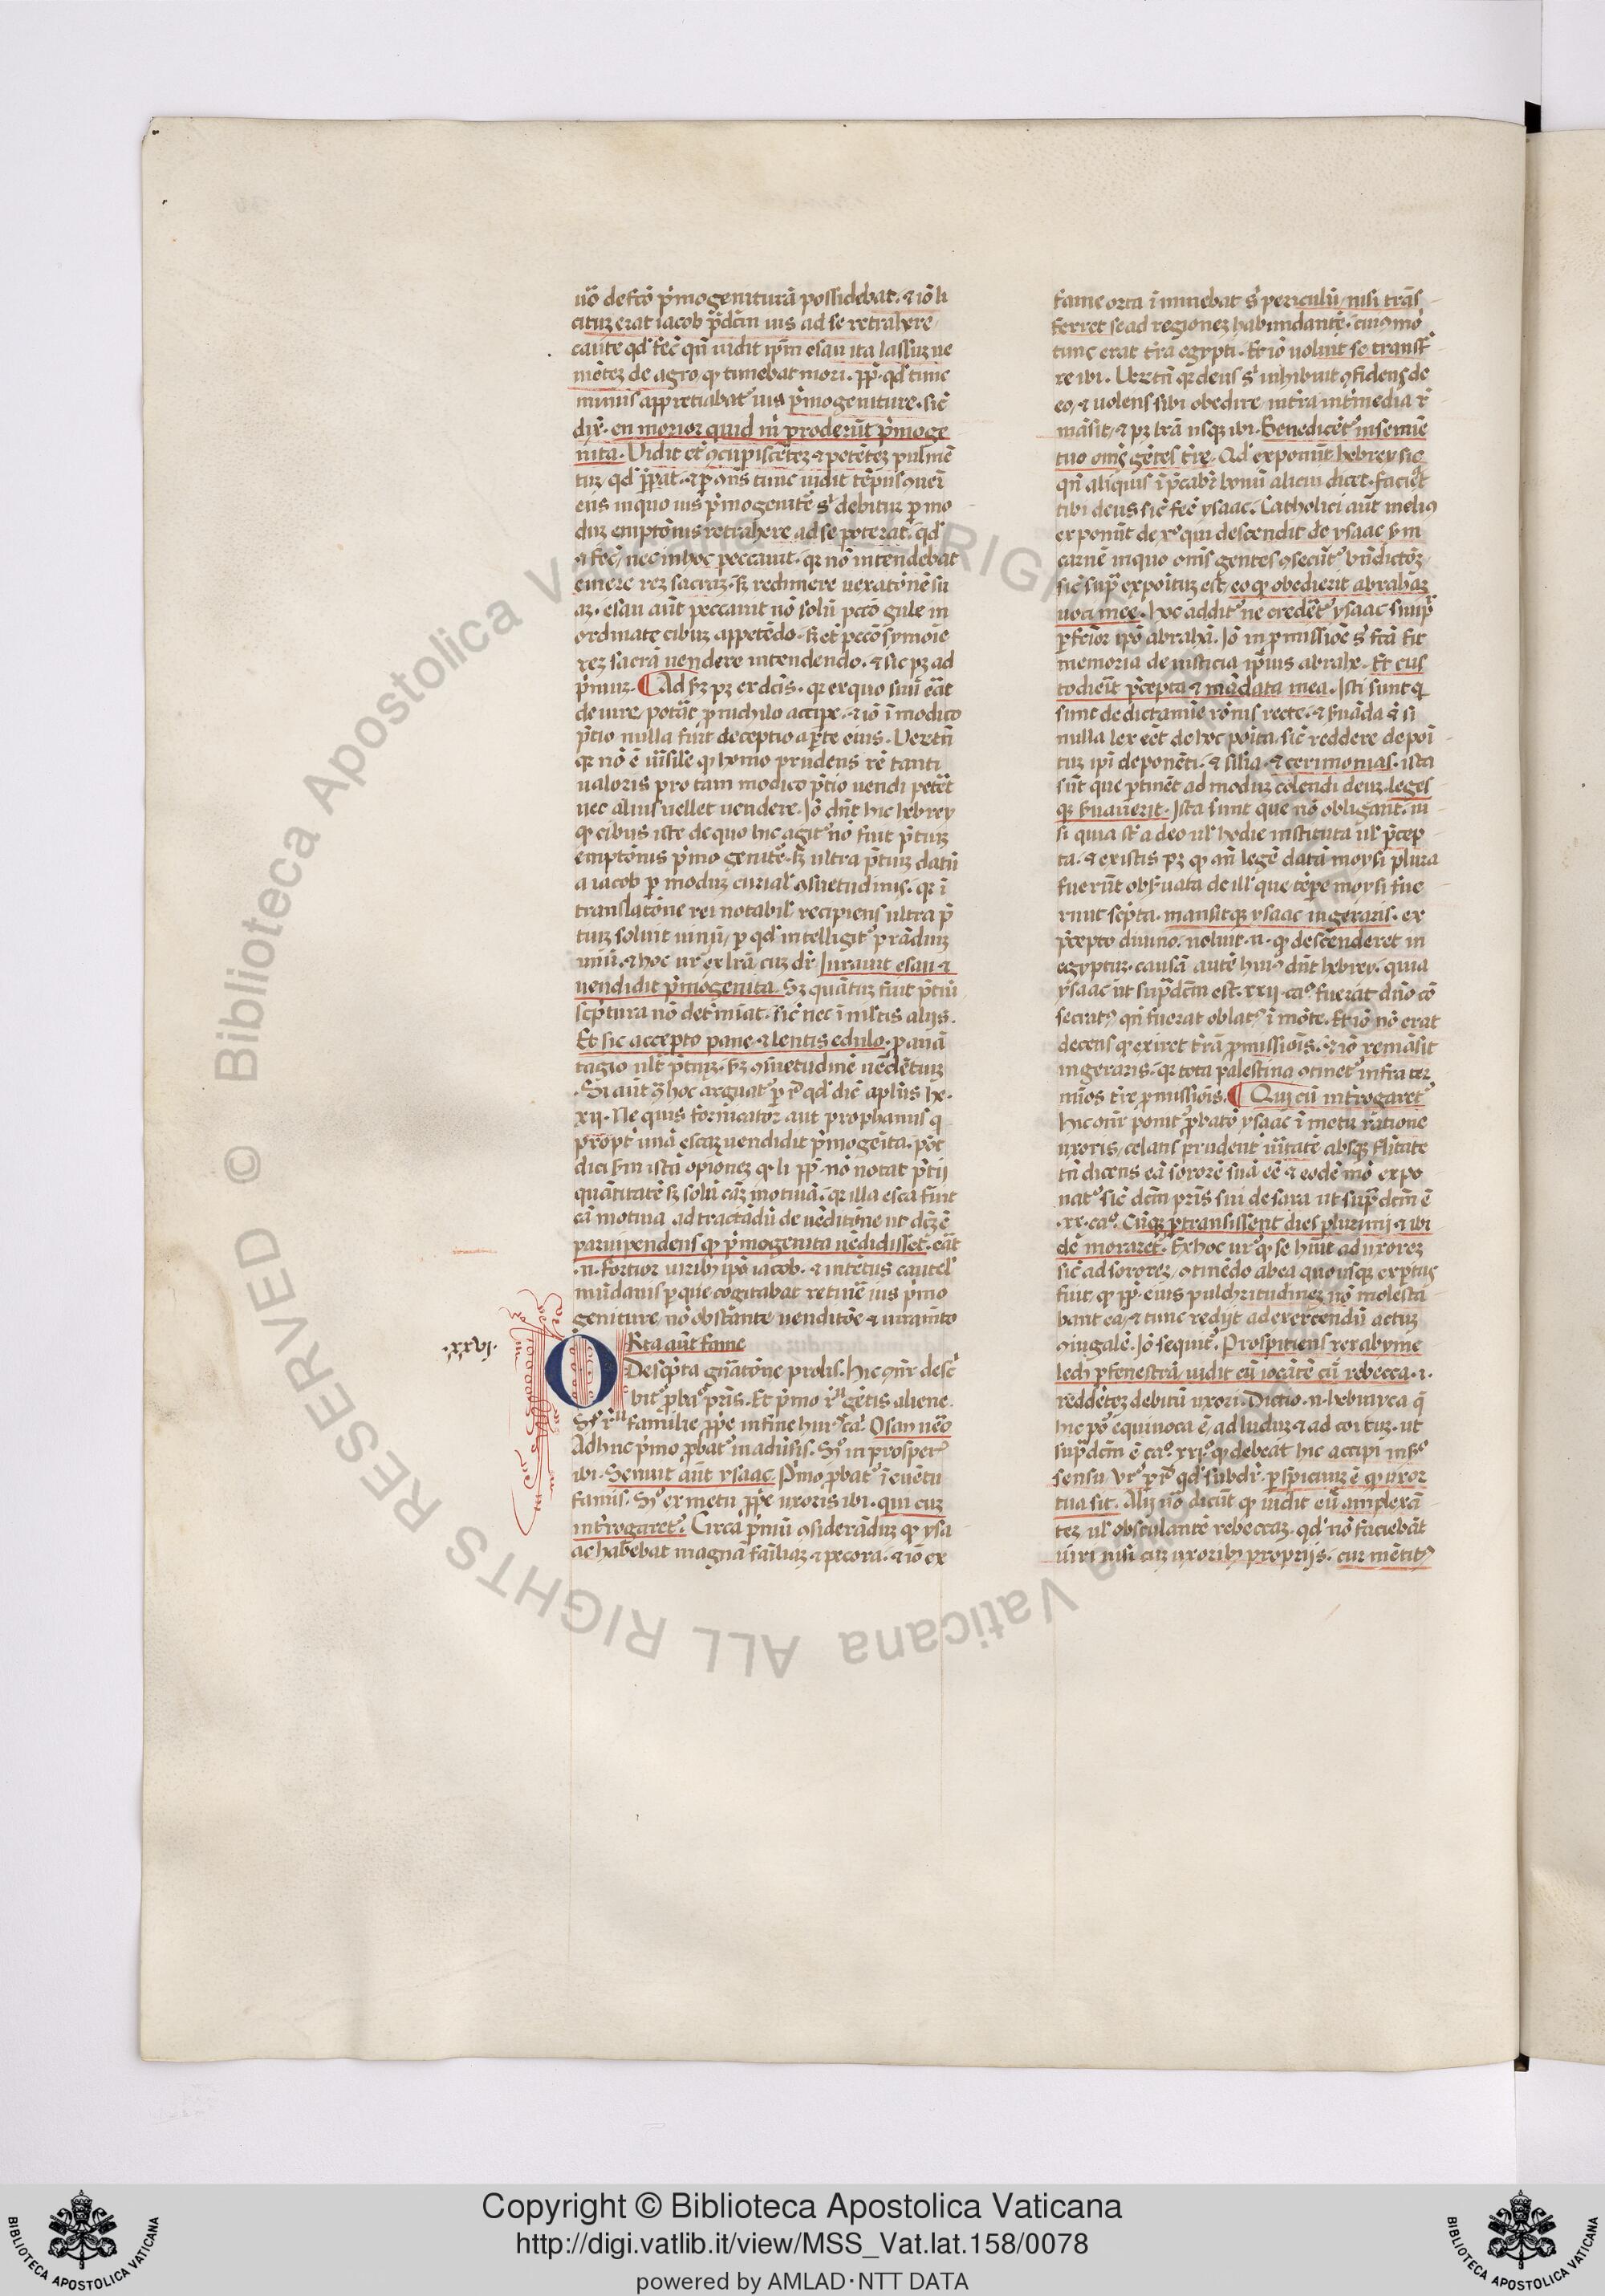 uo de fco pͥmogeniturā possidebat. ⁊ iō li
citum erat iacob p̄dcm ius ad se retrahere
caute qd fec̄ qn̄ uidit ip̄m esau ita lassum ue
niētez de agro, ꝙ timebat mori. pp̄ qd tunc
minus appretiabat᷑ ius pͥmogeniture. sic̄
dix̄. en morior quid m̄ proderūt pͥmoge
nita. Vidit et̄ ꝯcupiscētez ⁊ petētez pulmē
tuz qd p̄parat. ⁊ p ꝯn̄s tunc uidit tēpus ꝯueni
ens in quo ius pͥmogenite sͥ debituz p mo
duz emptōnis retrahere ad se poterat. qd
⁊ fec̄, nec in hoc peccauit. qr nō intendebat
emere rez sacraz. sꝫ redimere uexatōnē su
az. esau aūt peccauit nō solū pccō gule in
ordinate cibuz appetēdo. sꝫ et̄ pccō symonie
rez sacrā uendere intendendo. ⁊ sic pꝫ ad
pͥmuz. ¶ Ad scꝫ pꝫ ex dictis. qr ex quo suū erat
de iure, potat p nichilo accipe. ⁊ iō ī modico
p̄tio nulla fuit deceptio a parte eius. Veꝝtn̄
qr nō ē uisile ꝙ homo prudens rē tanti
ualoris pro tam modico p̄tio uendi petēt
nec alius uellet uendere. Jō dn̄t hic hebrey
ꝙ cibus iste de quo hic agit᷑ nō fuit p̄tiuz
emptōnis pͥmogenite. sꝫ ultra p̄tiuz datū
a iacob p moduz curial᷑ ꝯsuetudinis. qr ī
translatōne rei notabil᷑ recipiens ultra p̄
tiuz soluit uinū, p qd intelligit᷑ prādiuz
unū. ⁊ hoc ur̄ ex lrā cuz dr̄ Jurauit esau ⁊
uendidit pͥmogenita. Sꝫ quātuz fuit p̄tiū
scͥptura nō det̄miat. sic̄ nec ī mltis alijs.
Et sic accepto pane ⁊ lentis edulio. p auā
tagio ult̄ p̄tiuz. sꝫ ꝯsuetudinē uēdētiuz
Si aūt ꝯ hoc arguat᷑ p id qd dic̄ apl̄us he.
xij. Ne quis fornicator aut prophanus q
propt̄ unā escaz uendidit pͥmogenita. pōt
dici scdm istā opionez ꝙ li pp̄ nō notat p̄tij
quātitatē sꝫ solū cāꝫ motiuā. qr illa esca fuit
cā motiua ad tractādū de uēditōne ut dcꝫ ē
paruipendens ꝙ pͥmogenita uēdidisset. erat
.n. fortior uiribꝫ ipō iacob. ⁊ intētus cautel᷑
mūdanis p que cogitabat retinē ius pͥmo
geniture, nō obstāte uenditōe ⁊ iuramto
.xxvj.
ORta aūt fame
Descͥpta gnatōne prolis. hic ꝯn̄r descͥ
bit᷑ p̄batō pͥris. Et pͥmo rōe gētis aliene.
Scdo rōe familie pp̄e in fine huiꝰ ca. Osau uēo
Adhuc pͥmo p̄bat᷑ in adūsis. Scdo in prosperis
ibi. Senuit aūt ysaac. Pͥmo p̄bat᷑ ī euētu
famis. Scdo ex metu pp̄e uxoris ibi. qui cuz
int̄rogaret᷑. Circa pͥmū ꝯsiderāduz ꝙ ysa
ac habebat magnā familiaz ⁊ pecora. ⁊ iō ex
fame orta īminebat sͥ periculū, nisi trās
ferret se ad regionez habundantē. cuiꝰmō
tunc erat tr̄a egypti. Et iō uoluit se transf̄
re ibi. Veꝝtn̄ qr deus sͥ inhibuit ꝯfidens de
eo, ⁊ uolens sibi obedire, in tr̄a int̄media rͤ
māsit, ⁊ pꝫ lrā usqꝫ ibi. Benedicēt᷑ in semine
tuo om̄s gētes tr̄e. Qd exponūt hebrey sic
qn̄ aliquis ī p̄cabr bonū alicui dicet. faciet
tibi deus sic̄ fec̄ ysaac. Catholici aūt meliꝰ
exponūt de xͦ qui descendit de ysaac scdm
carnē in quo om̄s gentes ꝯsecūt᷑ bn̄dictōꝫ
sic̄ sup̄ expoituz est. eo ꝙ obedierit abrahā
uoci mee. hoc addit᷑ ne credet᷑ ysaac simpͬ
p̄fectior ipō abrahā. Jō in p̄missiōe sͥ fcā fit
memoria de iusticia ip̄ius abrahe. Et cus
todierit p̄cepta ⁊ mādata mea. Jsti sunt q
sunt de dictamīe rōnis recte. ⁊ seruāda ēt si
nulla lex eēt de hoc poita. sic̄ reddere depoi
tuz ipi deponēti. ⁊ silia. ⁊ cerimonias. ista
sūt que ptinēt ad moduz colendi deuz. leges
qꝫ suauerit. Jsta sunt que nō obligant. ni
si quia st̄ a deo ul᷑ hōdie instituta ul᷑ p̄cep
ta. ⁊ ex istis pꝫ ꝙ an̄ legē datā moysi plura
fuerūt obsuata de ill᷑ que tēpe moysi fue
runt scͥpta. mansitqꝫ ysaac in geraris. ex
p̄cepto diuino. noluit .n. ꝙ descēderet in
egyptuz. causā autē huiꝰ dn̄t hebrey. quia
ysaac ut sup̄dcm est .xxij. caͦ. fuerat dn̄o cō
secratꝰ qn̄ fuerat oblatꝰ ī mōte. Et iō nō erat
decens ꝙ exiret tr̄ā p̄missiois. ⁊ iō remāsit
in geraris. qr tota palestina ꝯtinet᷑ infra ter
mīos tr̄e p̄missiōis. ¶ Qui cū int̄rogaret᷑
hic ꝯn̄r ponit᷑ p̄batō ysaac ī metu ratione
uxoris, celans prudent᷑ ūitatē absqꝫ fl̄itate
tn̄ dicens eā sororē suā eē ⁊ eodē mō expo
nat᷑ sic̄ dcm pris sui de sara ut sup̄ dcm ē
.xx. caͦ. Cūqꝫ p̄transissent dies plurimi ⁊ ibi
dē moraret᷑. Ex hoc ur̄ ꝙ se hūit ad uxorez
sic̄ ad sororez, ꝯtinēdo ab ea quousqꝫ exptus
fuit, ꝙ pp̄ eius pulchritudinez nō molesta
bant eā, ⁊ tunc redijt ad exercendū actuz
ꝯiugalē. Jō sequit᷑. Prospitiens rex abyme
lech p fenestrā, uidit eū iocātē cū rebecca .i.
reddētez debitū uxori. Dictio .n. hebrayca q̄
hic poͥ equiuoca ē, ad luduz ⁊ ad coituz. ut
sup̄dcm ē caͦ. xxjͦ. ꝙ debeat hic accipi in scdo
sensu. Vr̄ p id qd subdr̄. pspicuuz ē ꝙ uxor
tua sit. Alij uō dicūt ꝙ uidit eū amplexā
tez ul᷑ obsculantē rebeccaz. qd nō faciebāt
uiri nisi cuz uxoribꝫ proprijs. cur mētitꝰ
Copyright © Biblioteca Apostolica Vaticana
http://digi.vatlib.it/view/MSS_Vat.lat.158/0078
powered by AMLAD·NTT DATA
BIBLIOTECA APOSTOLICA VATICANA
BIBLIOTECA APOSTOLICA VATICANA
© Biblioteca Apostolica Vaticana ALL RIGHTS RESERVED